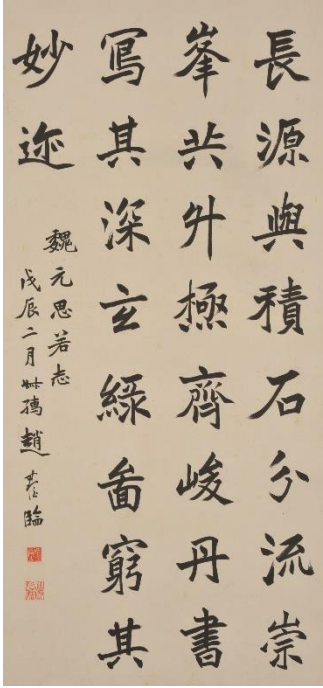 長源與積石分流崇
峯共升極齊峻丹書
寫其深玄綠啚窮其
妙迹
魏元思若志
戊辰二月叔孺趙時棢臨